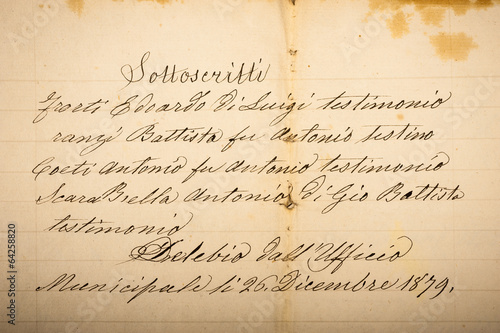 Sottoscritti
Edoardo di Luigi testimonio
rangi Battista fu Antonio testino
Coeti Antonio fu Antonio testimonio
Scara Brella Antonio di Gio Battista
testimonio
Delebio dall'Ufficio
Municipale li 26 Dicembre 1879.
64258820